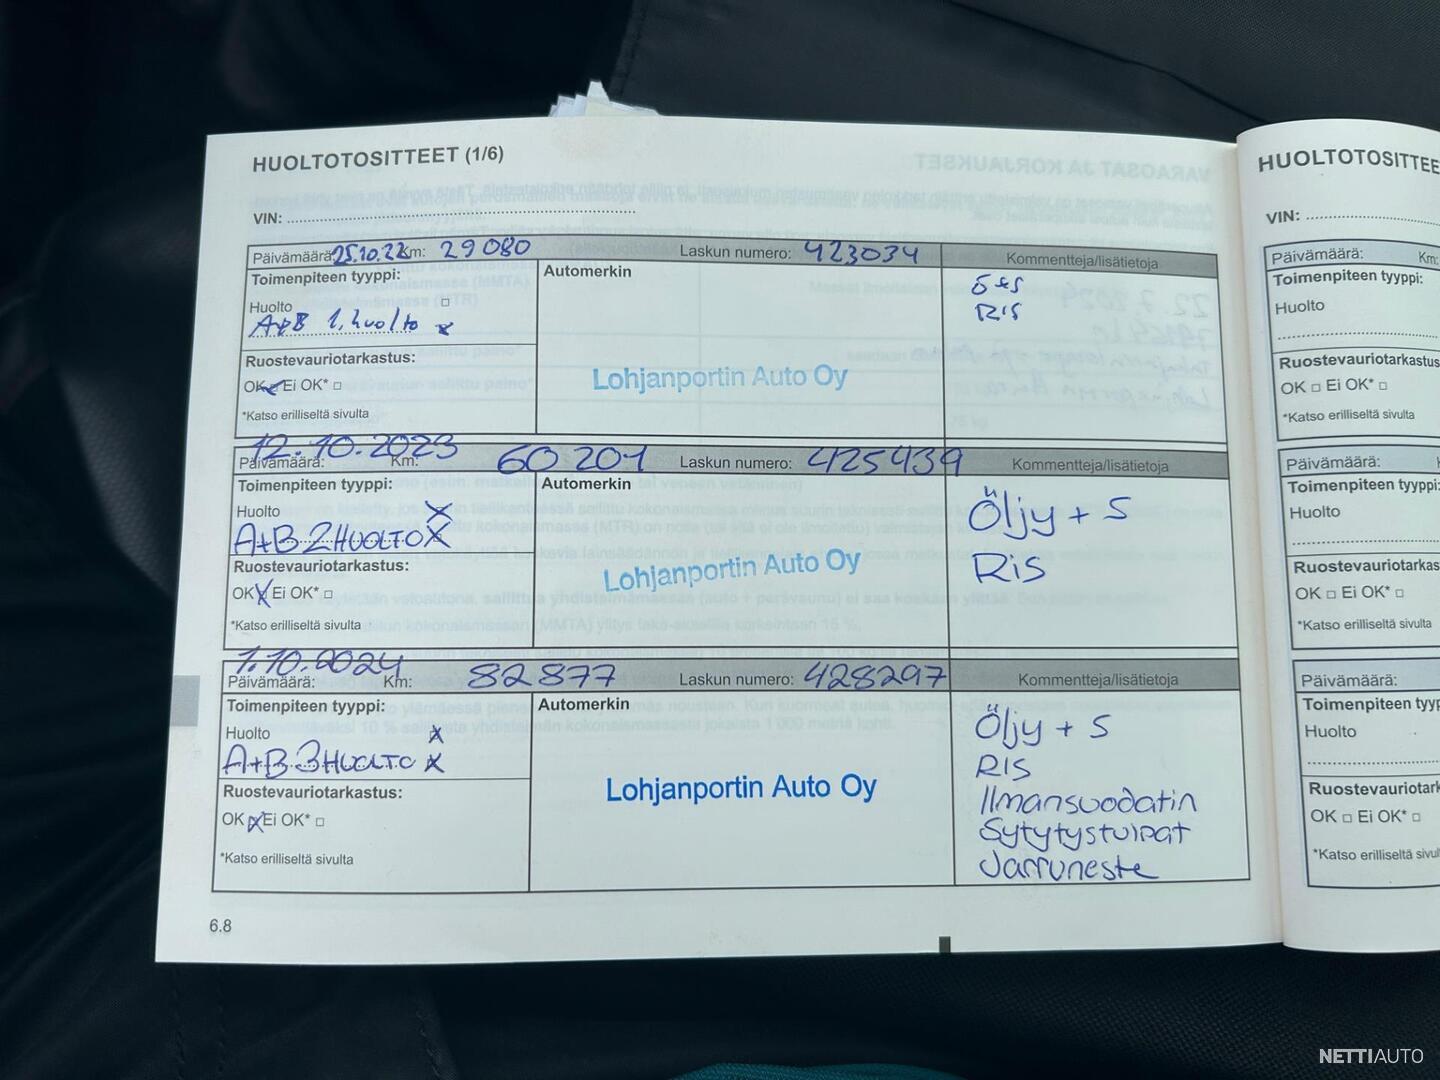 HUOLTOTOSITTEET (1/6)
VIN:
Päivämäärä: 25.10.22 Km: 29 080 Laskun numero: 423034 Kommentteja/lisätietoja
Toimenpiteen tyyppi: Automerkin
Huolto □
A+B 1. huolto x
Ö+S
RIS
Ruostevauriotarkastus:
OK □ Ei OK* □
Lohjanportin Auto Oy
*Katso erilliseltä sivulta
Päivämäärä: 12.10.2023 Km: 60 201 Laskun numero: 425439 Kommentteja/lisätietoja
Toimenpiteen tyyppi: Automerkin
Huolto X
A+B 2 HUOLTO X
Öljy + S
RIS
Ruostevauriotarkastus:
OK X Ei OK* □
Lohjanportin Auto Oy
*Katso erilliseltä sivulta
Päivämäärä: 1.10.2024 Km: 82 877 Laskun numero: 428297 Kommentteja/lisätietoja
Toimenpiteen tyyppi: Automerkin
Huolto X
A+B 3 HUOLTO X
Öljy + S
RIS
Ilmansuodatin
Sytytystulpat
Jarruneste
Ruostevauriotarkastus:
OK X Ei OK* □
Lohjanportin Auto Oy
*Katso erilliseltä sivulta
6.8
HUOLTOTOSITTEE
VIN:
Päivämäärä: Km:
Toimenpiteen tyyppi:
Huolto
Ruostevauriotarkastus
OK □ Ei OK* □
*Katso erilliseltä sivulta
Päivämäärä:
Toimenpiteen tyyppi:
Huolto
Ruostevauriotarkas
OK □ Ei OK* □
*Katso erilliseltä sivulta
Päivämäärä:
Toimenpiteen typp
Huolto
Ruostevauriotark
OK □ Ei OK* □
*Katso erilliseltä sivul
NETTIAUTO